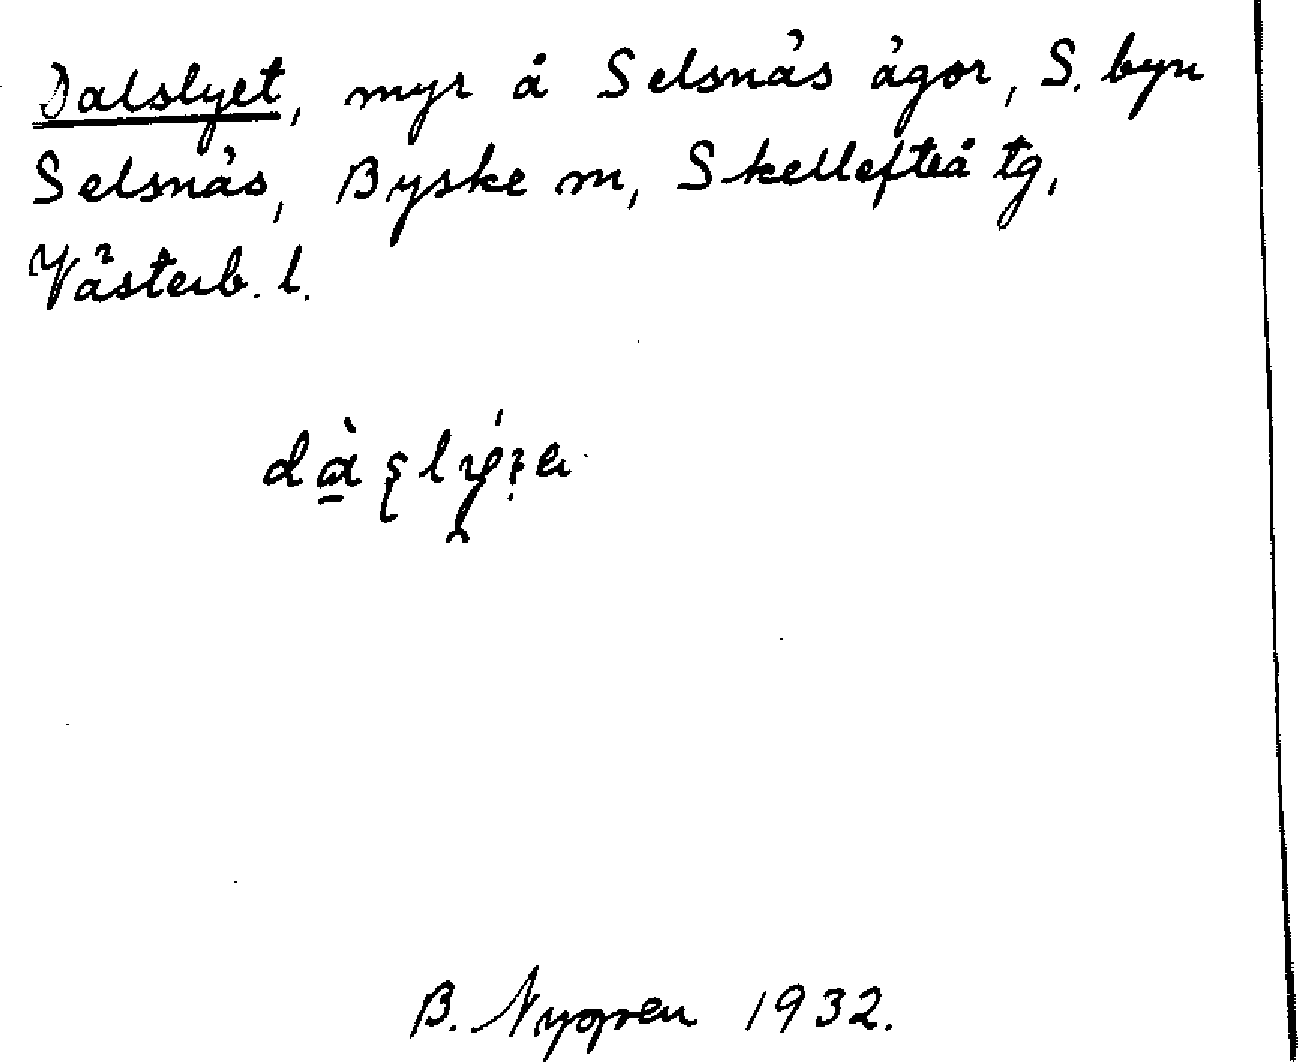 Dalslyet, myr å Selsnäs ägor, S. byn
Selsnäs, Byske m, Skellefteå tg,
Västerb. l.
B. Nygren 1932.